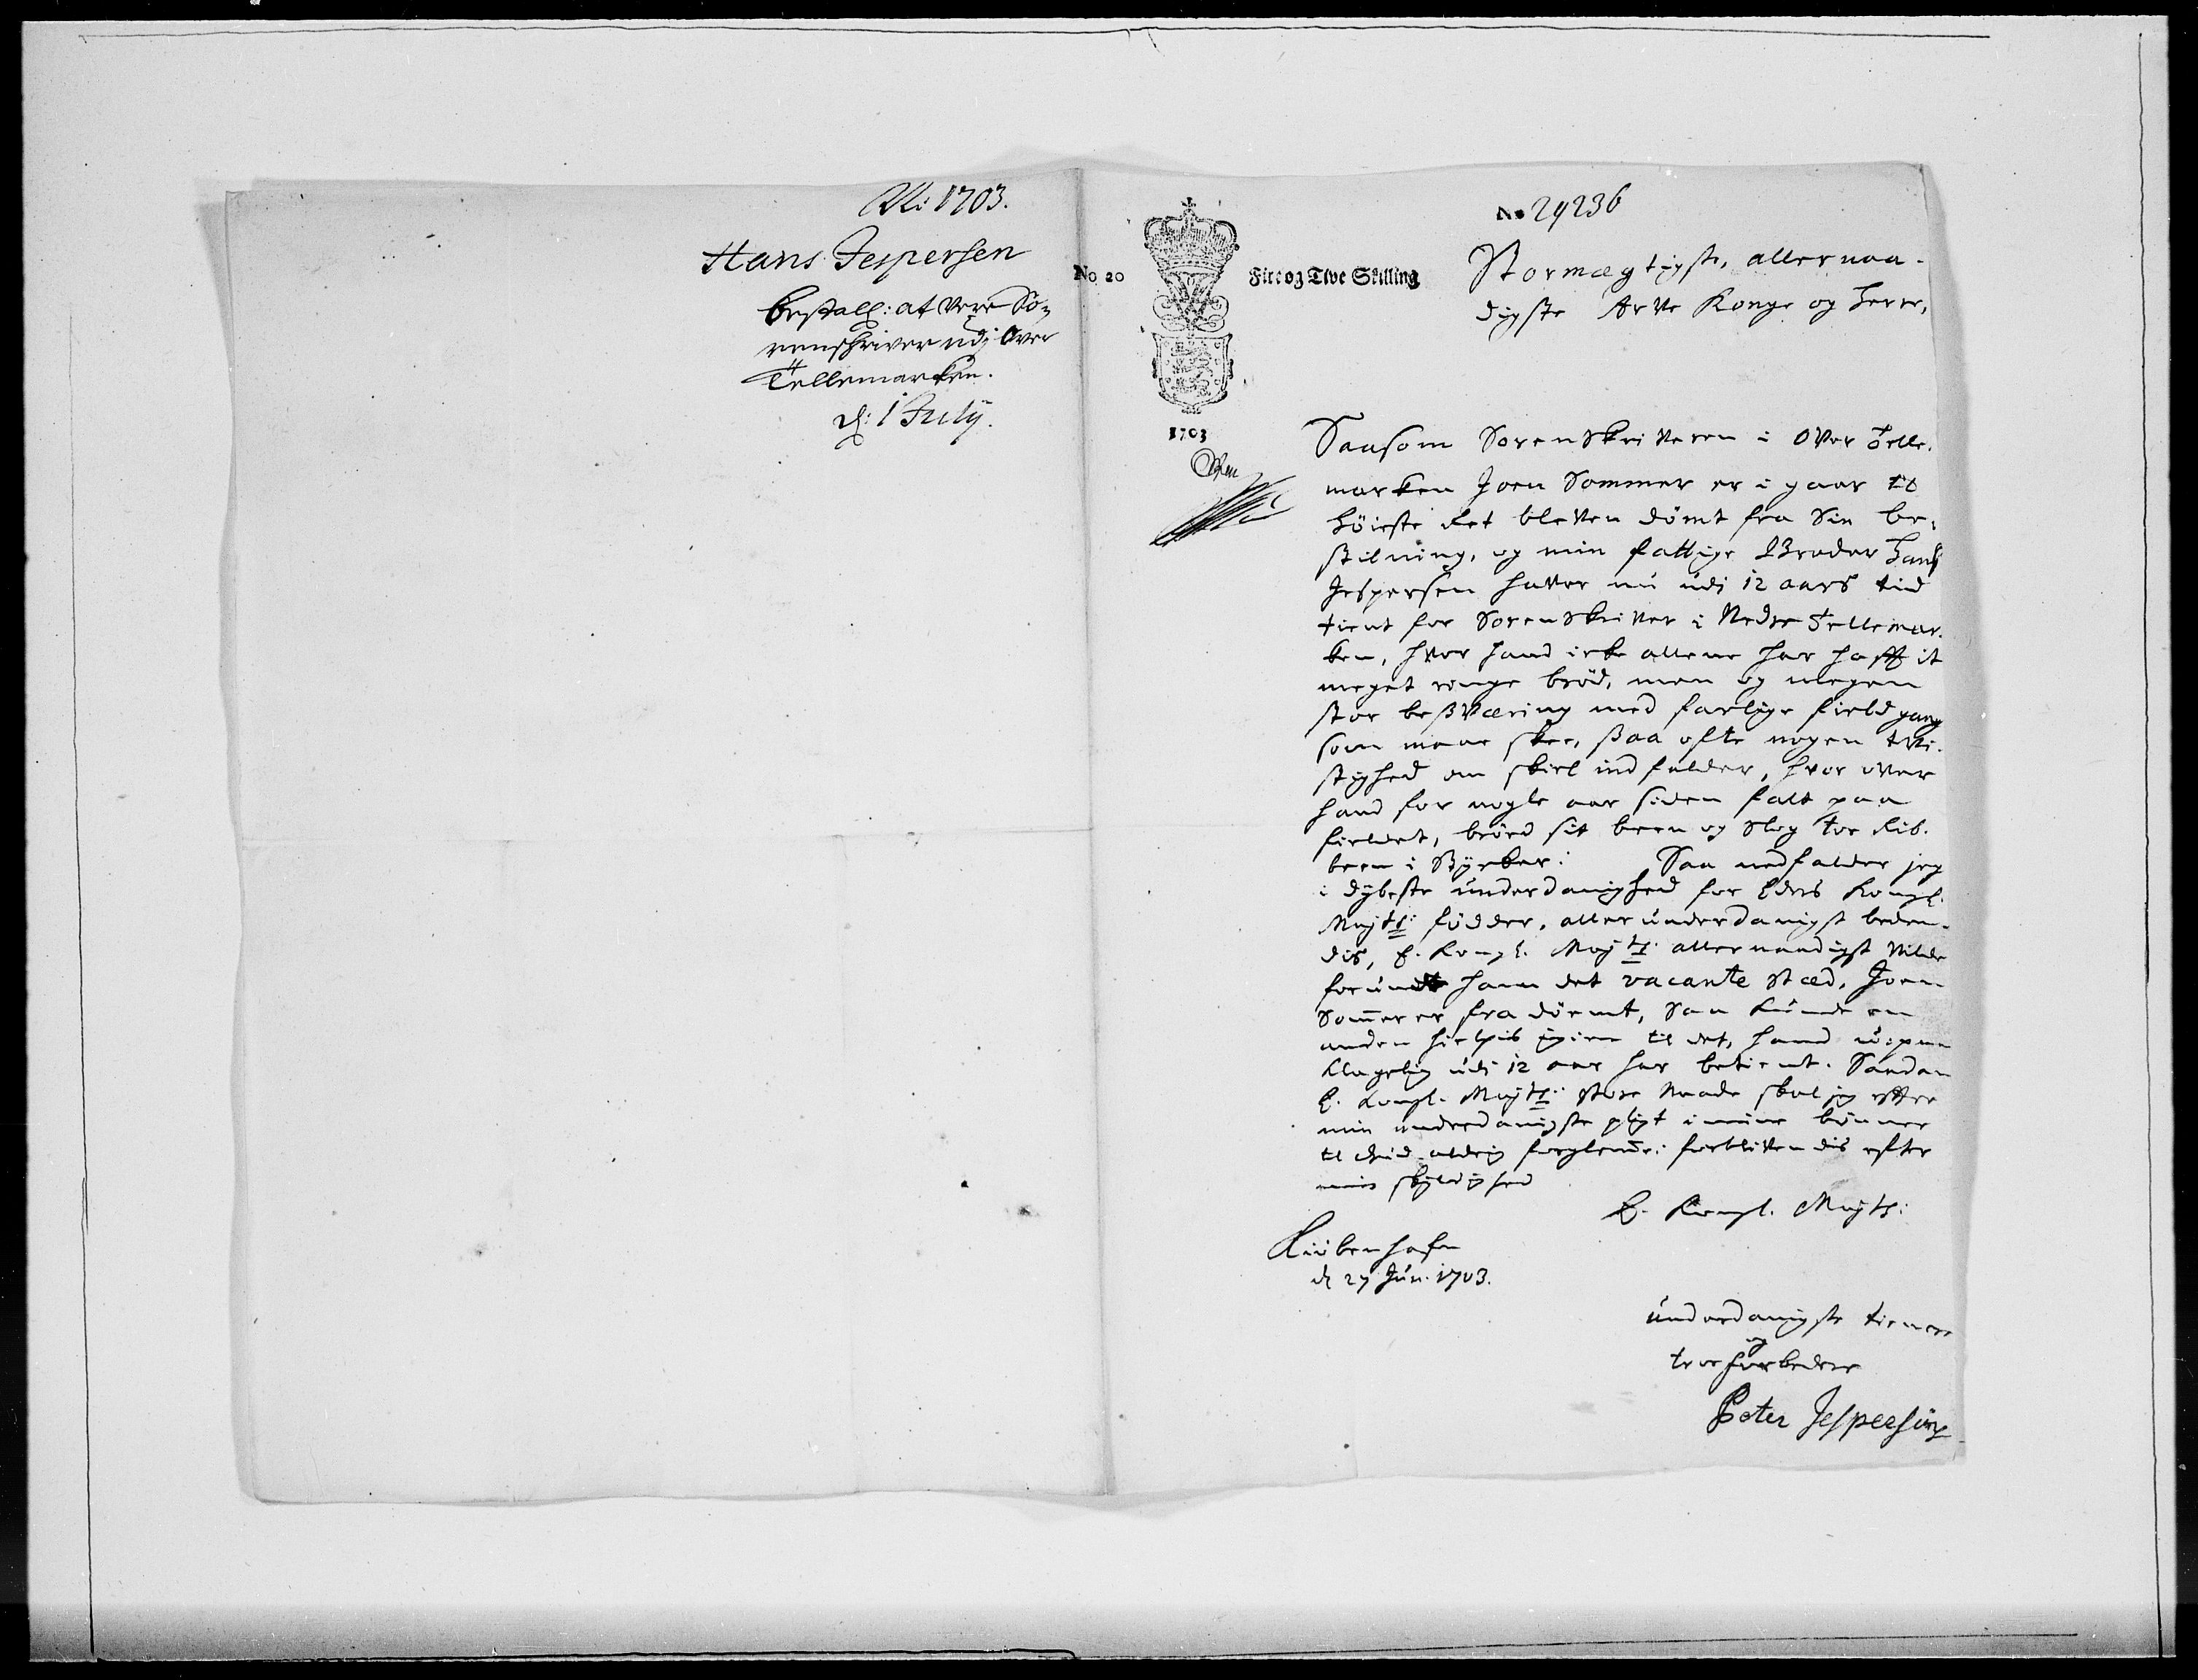 1703.
Hans Jespersen
bestall: at være So-
renskriver udj Over
Tellemarken.
d: 1 July.
No 20
Fire og Tive Skilling
1703
No 29236
Stormægtigste, allernaa-
digste Arve Konge og Herre,
Saasom Sorenskriveren i Over Telle-
marken Joen Sommer er i gaar til
höieste Ret bleven dömt fra sin be-
stilning, og min fattige Broder Hans
Jespersen haver nu udi 12 aars tid
tient for Sorenskriver i Nedre Tellemar-
ken, hvor hand icke allene har hafft it
meget ringe bröd, men og megen
stor besværing med farlige field gang
som maae skee, saa ofte nogen tvi-
stighed om skiel indfalder, hvor over
hand for nogle aar siden falt paa
fieldet, bröd sit been og slog toe Rib-
been i Stycker: Saa nedfalder jeg
i dybeste underdanighed for Eders Kongl.
Majts: födder, allerunderdanigst beden-
dis, E. Kongl. Majts: allernaadigst vilde
forundt ham det vacante stæd, Joen
Sommer er fra dömt, saa kunde en
anden hielpis igien til det, hand upaa-
klagelig udi 12 aar har betient. Saadan
E. Kongl. Majts: store Naade skal jeg efter
min underdanigste pligt i mine bönner
til Gud aldrig forglemme: forblivendis efter
min skyldighed
E. Kongl. Majts:
Kiöbenhafn
d 27 Jun. 1703.
underdanigste tienere
og
troe forbedere
Peter Jespersön